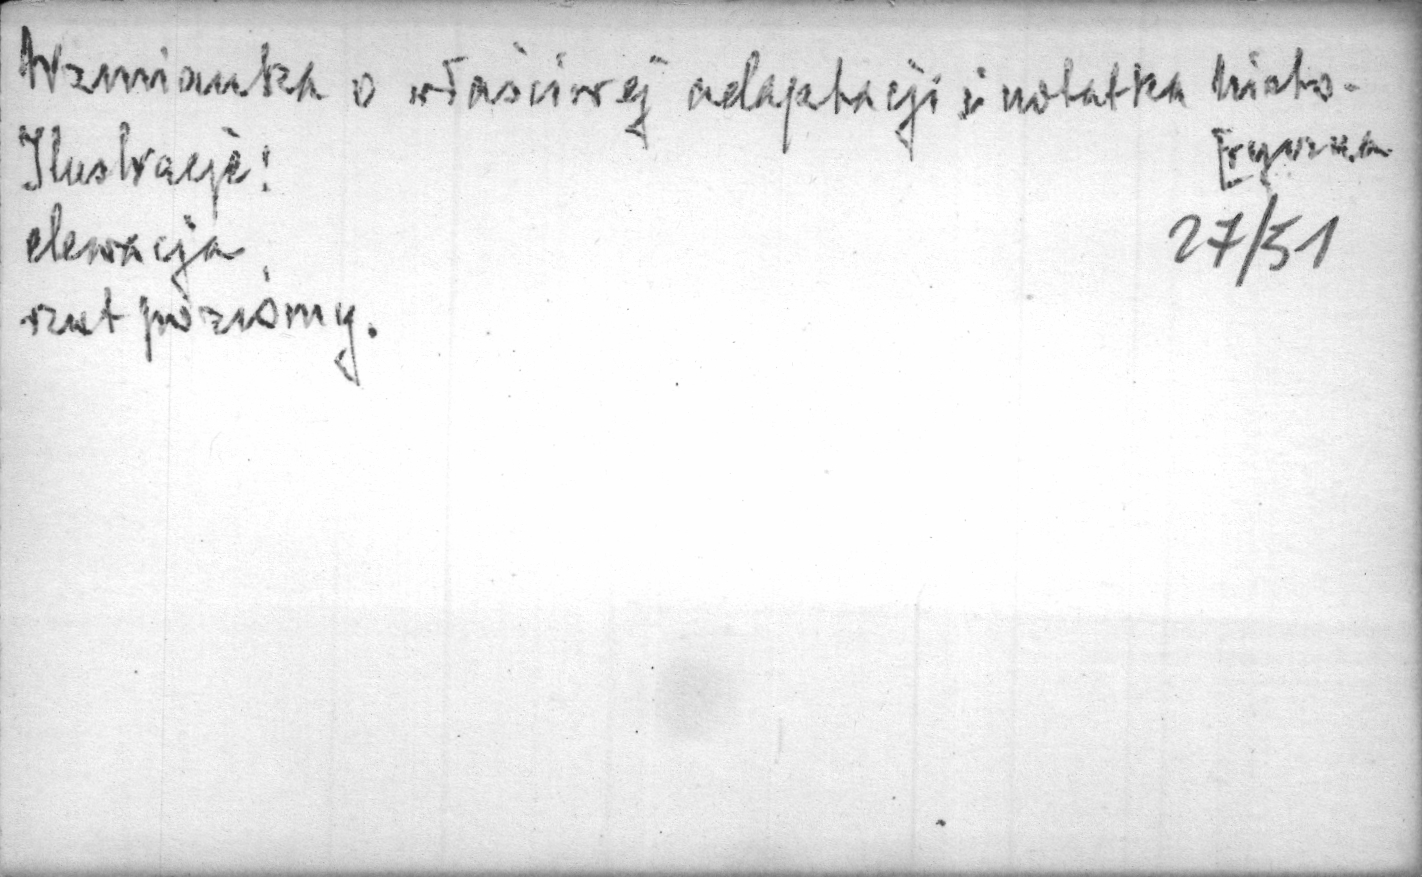 Wzmianka o właściwej adaptacji i notatka histo-
[ryczna
Ilustracje:
elewacja,
rzut poziomy.
27/51